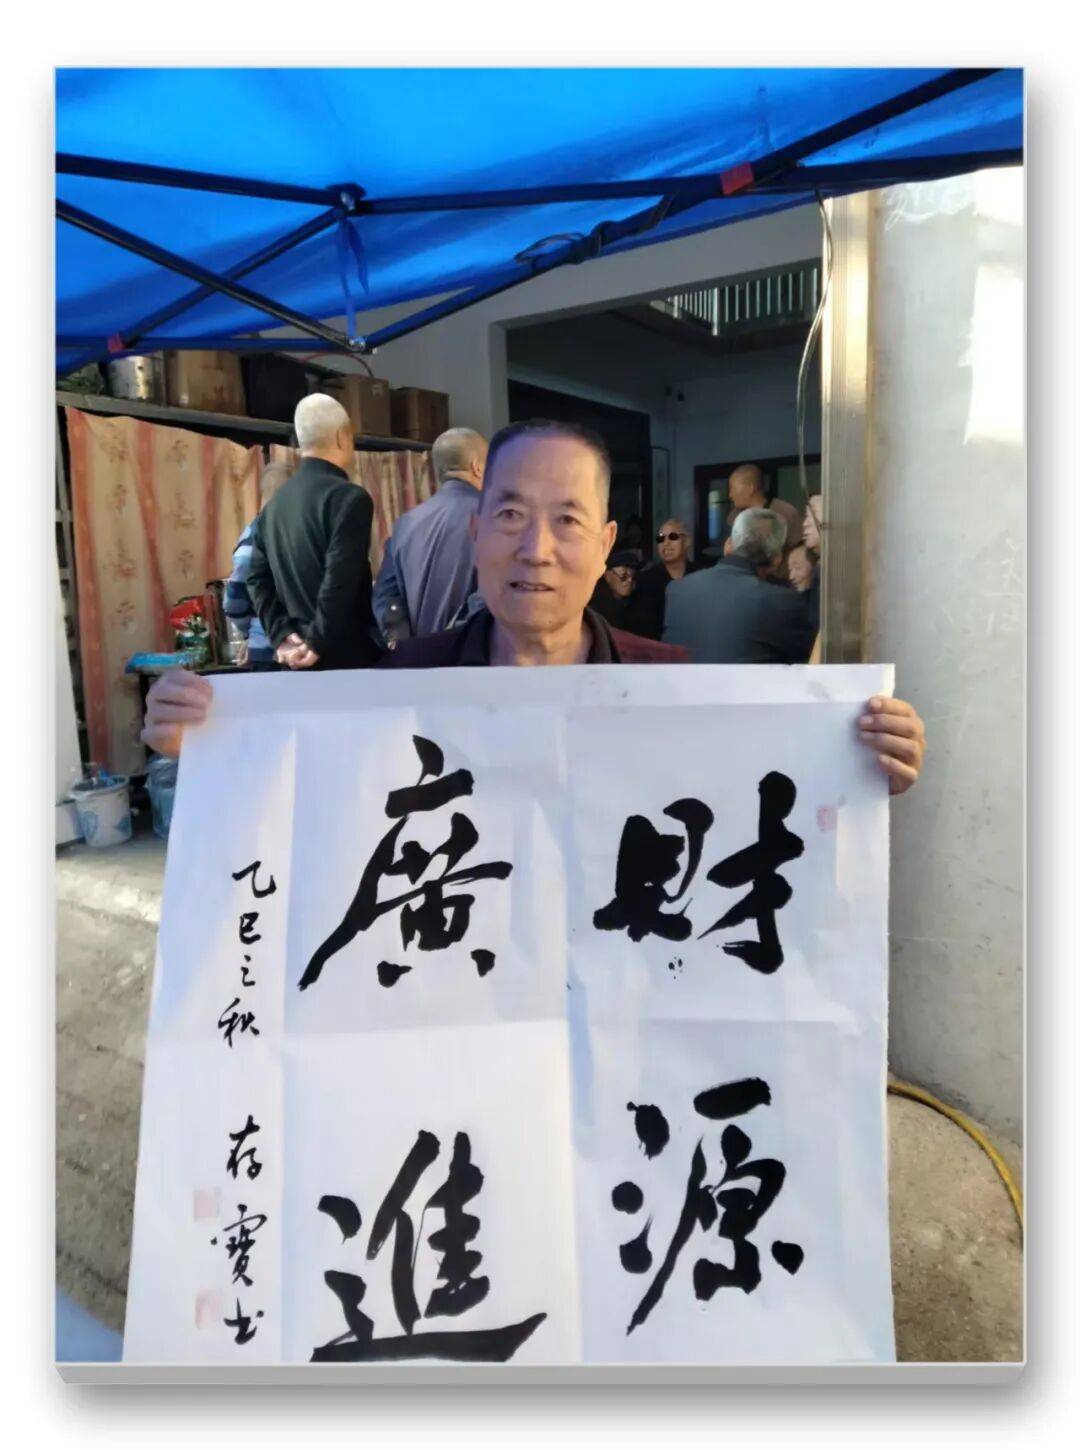 財源
廣進
乙巳之秋 存寶书